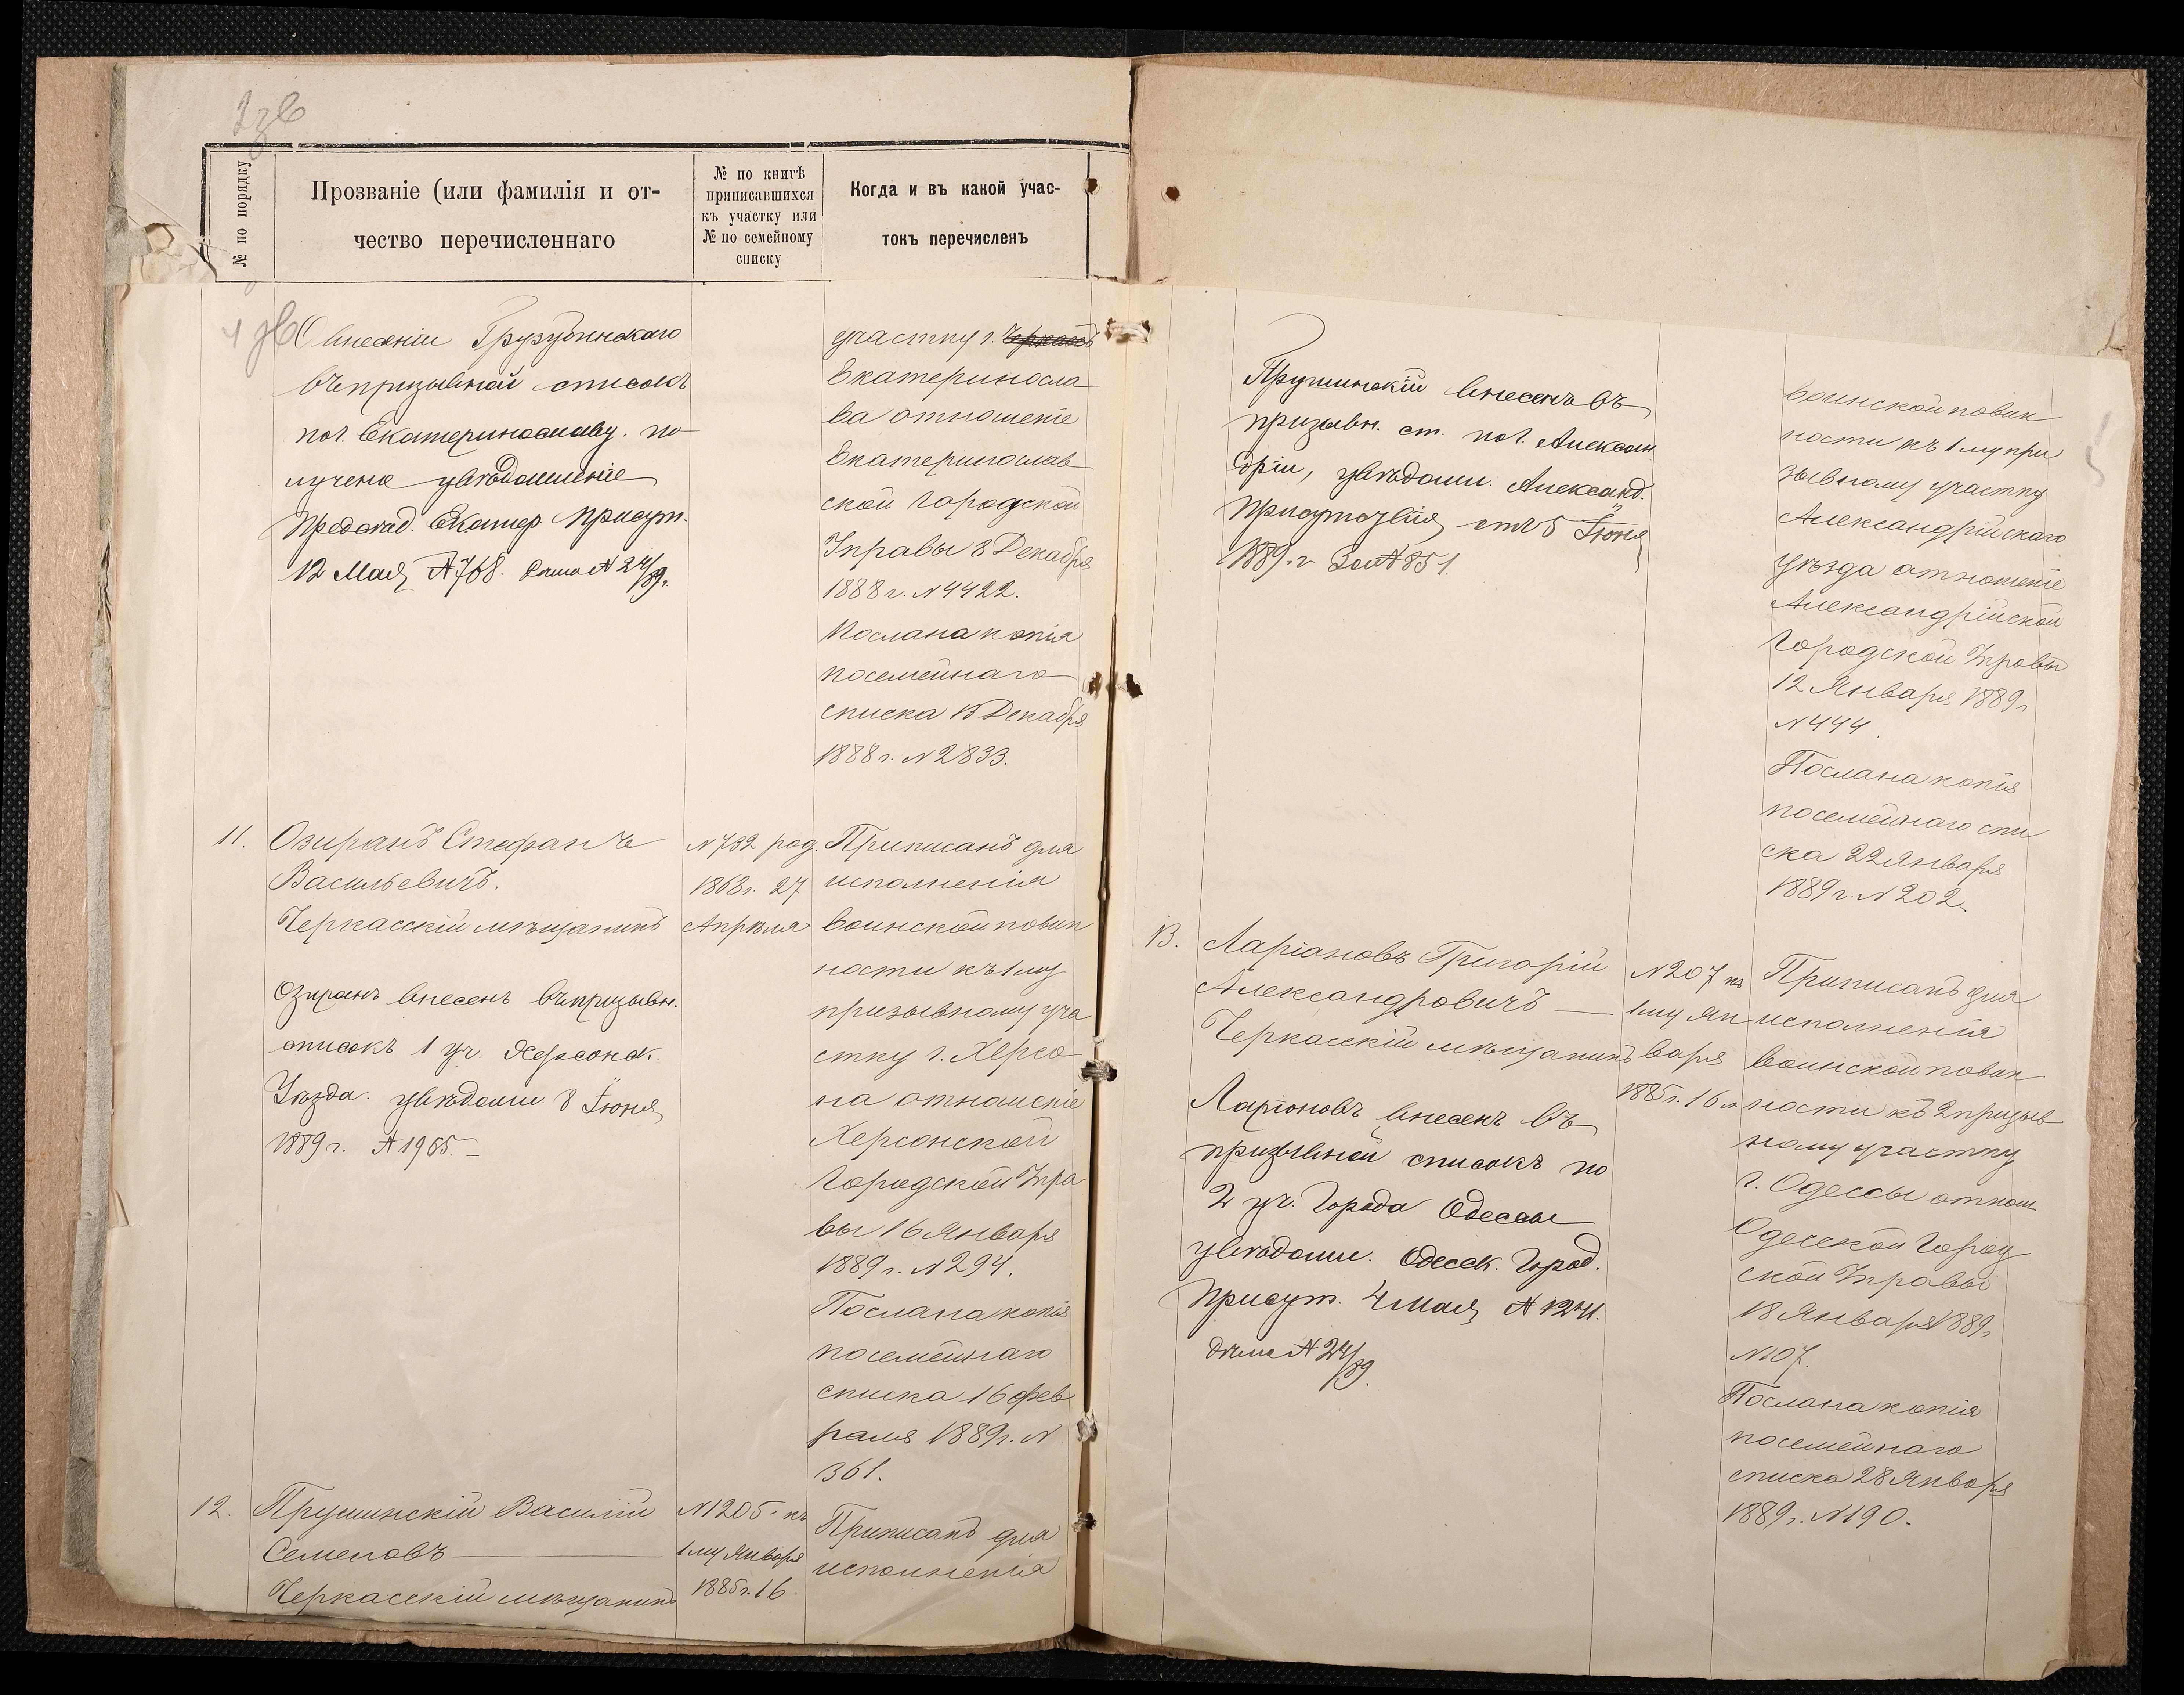 № по порядку
Прозваніе (или фамилія и от-
чество перечисленнаго
№ по книгѣ
приписавшихся
къ участку или
№ по семейному
списку
Когда и въ какой учас-
токъ перечисленъ
О внесеніи
въ призывной списокъ
по г. Екатеринославу. по
лучено увѣдомленіе
Екатер. Присут.
12 Мая № 768. № 24/89.
участку г.
Екатериносла
ва отношеніе
Екатеринослав
ской Городской
Управы 8 Декабря
1888 г. № 4422.
Послана копія
посемейнаго
списка 15 Декабря
1888 г. № 2833.
11. Озиранъ Стефанъ
Васильевичъ.
Черкасскій мѣщанинъ
Озиранъ внесенъ въ призывн.
списокъ 1 уч. Херсонск.
Уѣзда. увѣдомл 8 Іюня
1889 г. № 1965.
№ 732 род.
1868 г. 27
Апрѣля
Приписанъ для
исполненія
воинской повин
ности къ 1му
призывному уча
стку г. Херсо
на отношеніе
Херсонской
Городской Упра
вы 16 Января
1889 г. № 294.
Послана копія
посемейнаго
списка 16 фев
раля 1889 г. №
361.
12. Прушинскій Василій
Семеновъ
Черкасскій мѣщанинъ
№ 1205 къ
1му Января
1885 г. 16.
Приписанъ для
исполненія
Прушинскій внесенъ въ
призывн. сп. по г. Алексан
дріи, увѣдомл. Александ.
Присутствія отъ 5 Іюня
1889 г. За № 851.
воинской повин
ности къ 1му при
зывному участку
Александрійскаго
уѣзда отношеніе
Александрійской
Городской Управы
12 Января 1889 г
№ 444.
Послана копія
посемейнаго спи
ска 22 Января
1889 г. № 202.
13. Ларіоновъ Григорій
Александровичъ
Черкасскій мѣщанинъ
Ларіоновъ внесенъ въ
призывной списокъ по
2 уч. Города Одессы
увѣдомл. Одесск. Город.
Присут. 4 Мая № 1241.
дѣло № 24/89.
№ 207 къ
1му Ян
варя
1885 г. 16 л
Приписанъ для
исполненія
воинской повин
ности къ 2 призыв
ному участку
г. Одессы отнош
Одесской Город
ской Управы
18 Января 1889 г
№ 107.
Послана копія
посемейнаго
списка 28 Января
1889 г. № 190.